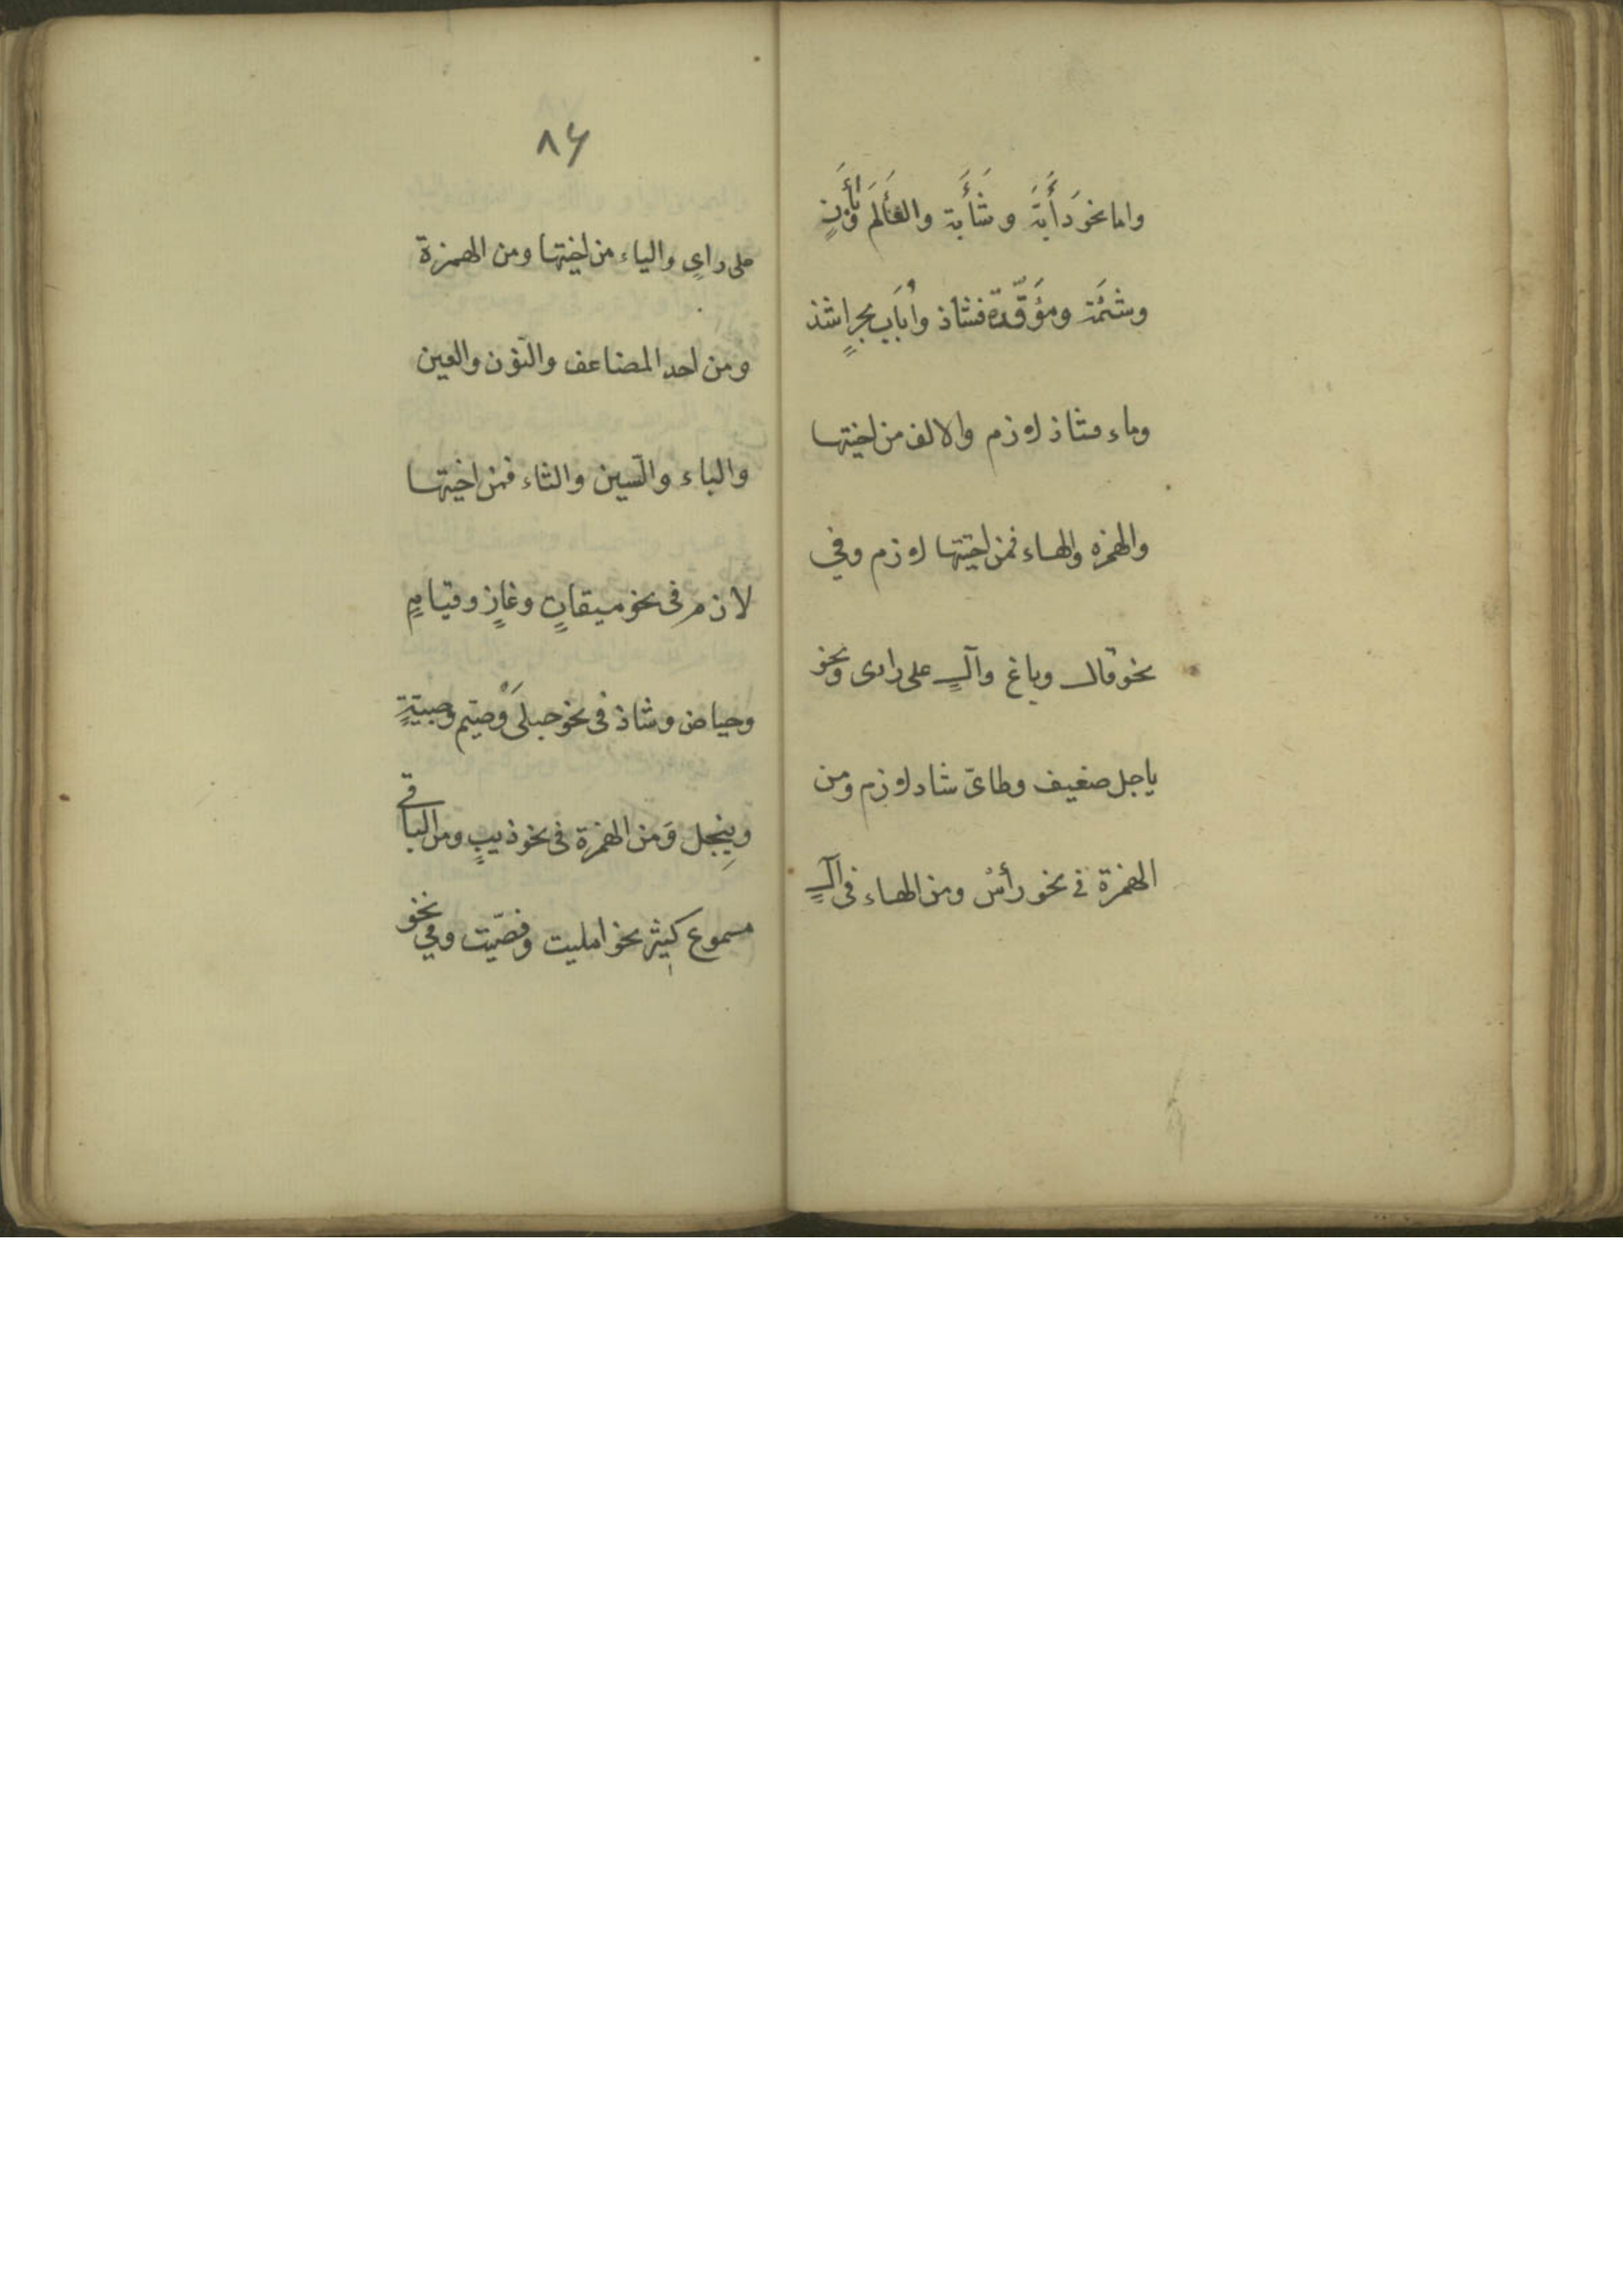 واما نحو دَأَبَّة وشَأَبَّة والعَأْلَم وبَأْزٍ
وشئمة ومؤقدة فشاذ وأُبَاب بحرٍ اشذ
وماء شاذ لازم والالف من اختيها
والهمزه والهاء فمن اختيها لازم وفي
نحو قال وباع وآلٍ على راى ونحو
ياجل ضعيف وطائى شاد لازم ومن
الهمزة في نحو رأسْ ومن الهاء فى آلٍ
٨٦
على راىٍ والياء من اختيها ومن الهمزة
ومن احد المضاعف والنّون والعين
والباء والسّين والثاء فمن اختيها
لازم فى نحو ميقاتٍ وغازٍ وقيامٍ
وحياض وشاذ فى نحو حبلَىْ وصيّم وصبيةٍ
ويِيجل ومن الهمزة فى نحو ذيبٍ ومن الباقي
مسموع كثير نحو امليت وقصّيت وفي نحو